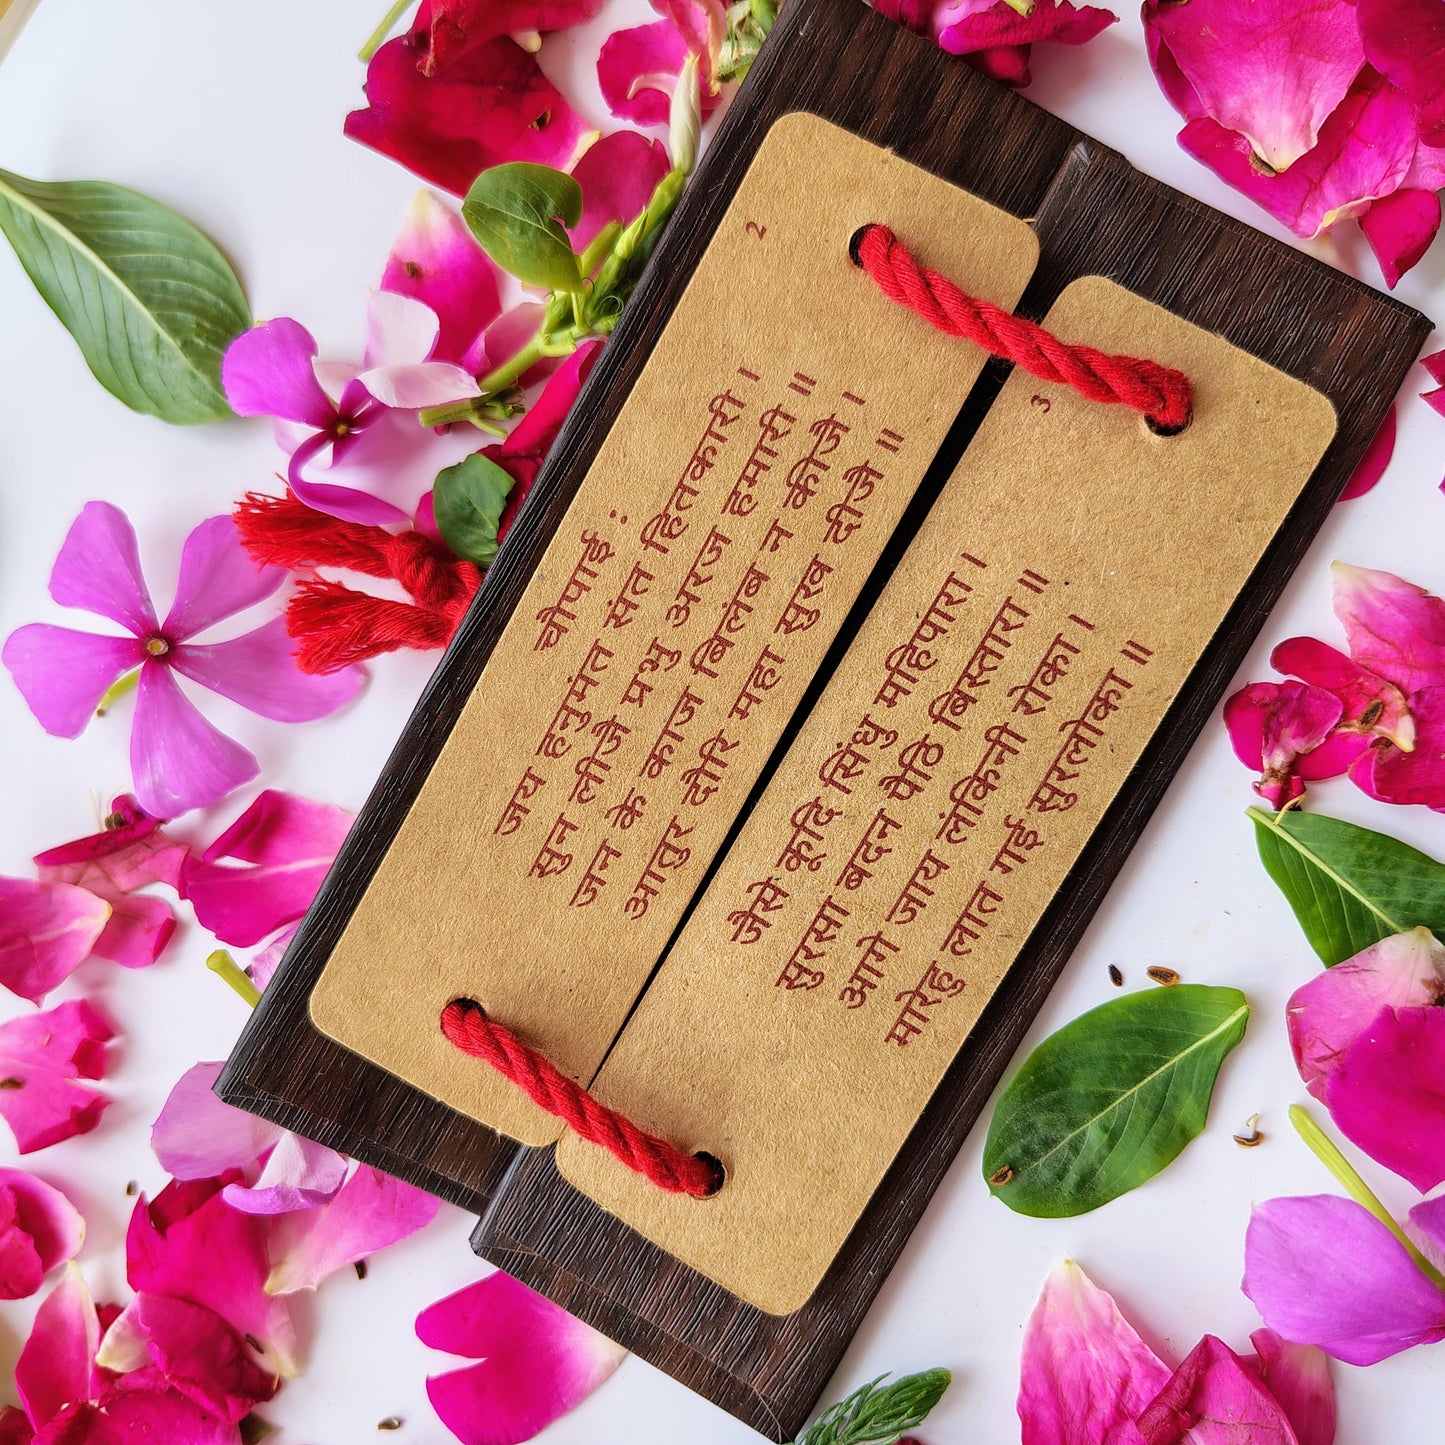 2
चौपाई :
जय हनुमंत संत हितकारी।
सुन लीजै प्रभु अरज हमारी॥
जन के काज बिलंब न कीजै।
आतुर दौरि महा सुख दीजै॥
3
जैसे कूदि सिंधु महिपारा।
सुरसा बदन पैठि बिस्तारा॥
आगे जाय लंकिनी रोका।
मारेहु लात गई सुरलोका॥